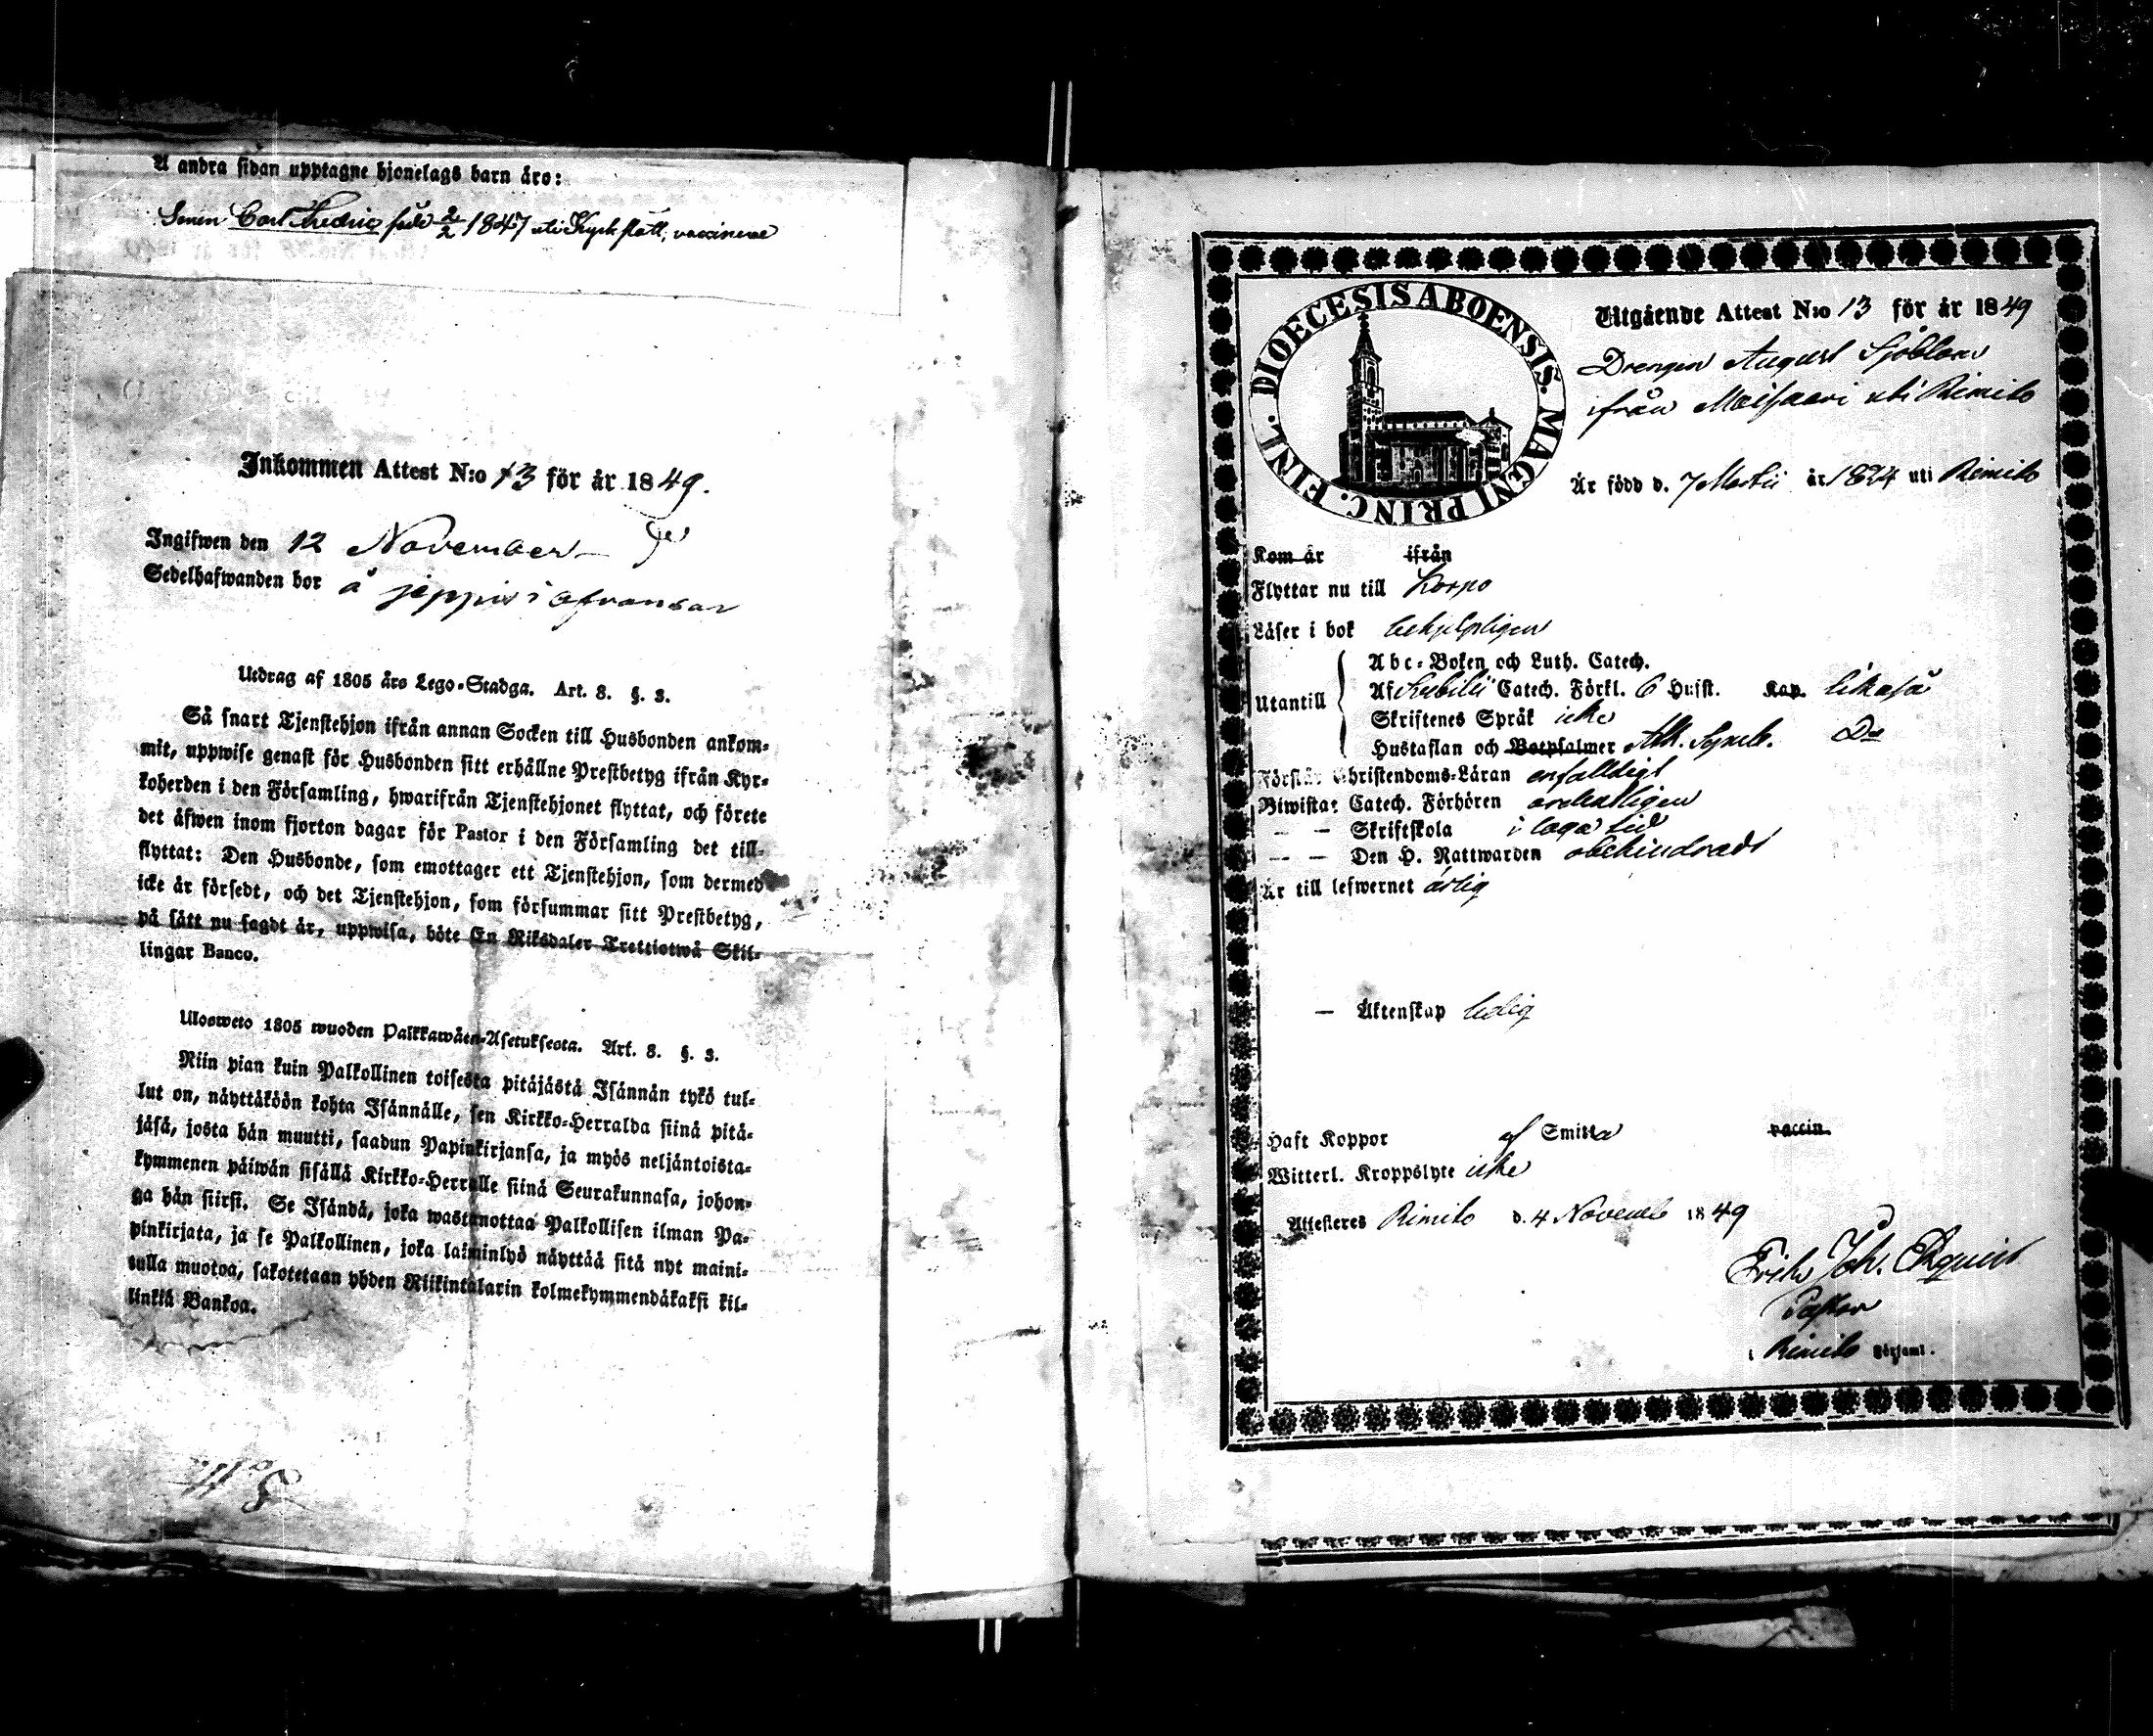 A andra sidan upptagne hjonelags barn äro:
Sonen Carl Fredric född 2/2 1847 uti Kyrkslätt, vaccinerad
Inkommen Attest N:o 13 för år 1849.
Ingifwen den 12 November
Sedelhafwanden bor å
Utdrag af 1805 års Lego-Stadga. Art. 8. §. 3.
Så snart Tjenstehjon ifrån annan Socken till Husbonden ankom-
mit, uppwise genast för Husbonden sitt erhållne Prestbetyg ifrån Kyr-
koherden i den Församling, hwarifrån Tjenstehjonet flyttat, och förete
det äfwen inom fjorton dagar för Pastor i den Församling det till-
flyttat: Den Husbonde, som emottager ett Tjenstehjon, som dermed
icke är försedt, och det Tjenstehjon, som försummar sitt Prestbetyg,
på sätt nu sagdt är, uppwisa, böte En Riksdaler Trettiotwå Skil-
lingar Banco.
Uloswete 1805 wuoden Palkkawäen-Asetuksesta. Art. 8. §. 3.
Niin pian kuin Palkollinen toisesta pitäjästä Isännän tykö tul-
lut on, näyttäköön kohta Isännälle, sen Kirkko-Herralda siinä pitä-
jäsä, josta hän muutti, saadun Papinkirjansa, ja myös neljäntoista-
kymmenen päiwän sisällä Kirkko-Herralle siinä Seurakunnasa, johon-
ga hän siirsi. Se Isändä, joka wastanottaa Palkollisen ilman Pa-
pinkirjata, ja se Palkollinen, joka laiminlyö näyttää sitä nyt maini-
tulla muotoa, sakotetaan yhden Riikintalarin kolmekymmendäkaksi kil-
linkiä Bankoa.
DIOECESIS ABOENSIS. MAGNI PRINC. FINL.
Utgående Attest N:o 13 för år 1849
Drengen August Sjöblom
ifrån Maisaari uti Rimito
Är född d. 7 Martii år 1824 uti Rimito
Kom år ifrån
Flyttar nu till Korpo
Läser i bok behjelpligen
Utantill
Abc-Boken och Luth. Catech.
Af Svebilii Catech. Förkl. 6 Hufst. Kap. likaså
Skriftenes Språk icke
Hustaflan och Botpsalmer Ath. Symb. Do
Förstår Christendoms-Läran enfalldigt
Biwistat Catech. Förhören ordentligen
— — Skriftskola i laga tid
— — Den H. Nattwarden obehindradt
Är till lefwernet ärlig
— Äktenskap ledig
Haft Koppor af Smitta vaccin.
Witterl. Kroppslyte icke
Attesteres Rimito d. 4 Novemb 1849
Erik Joh.
Pastor
i Rimito Församl.